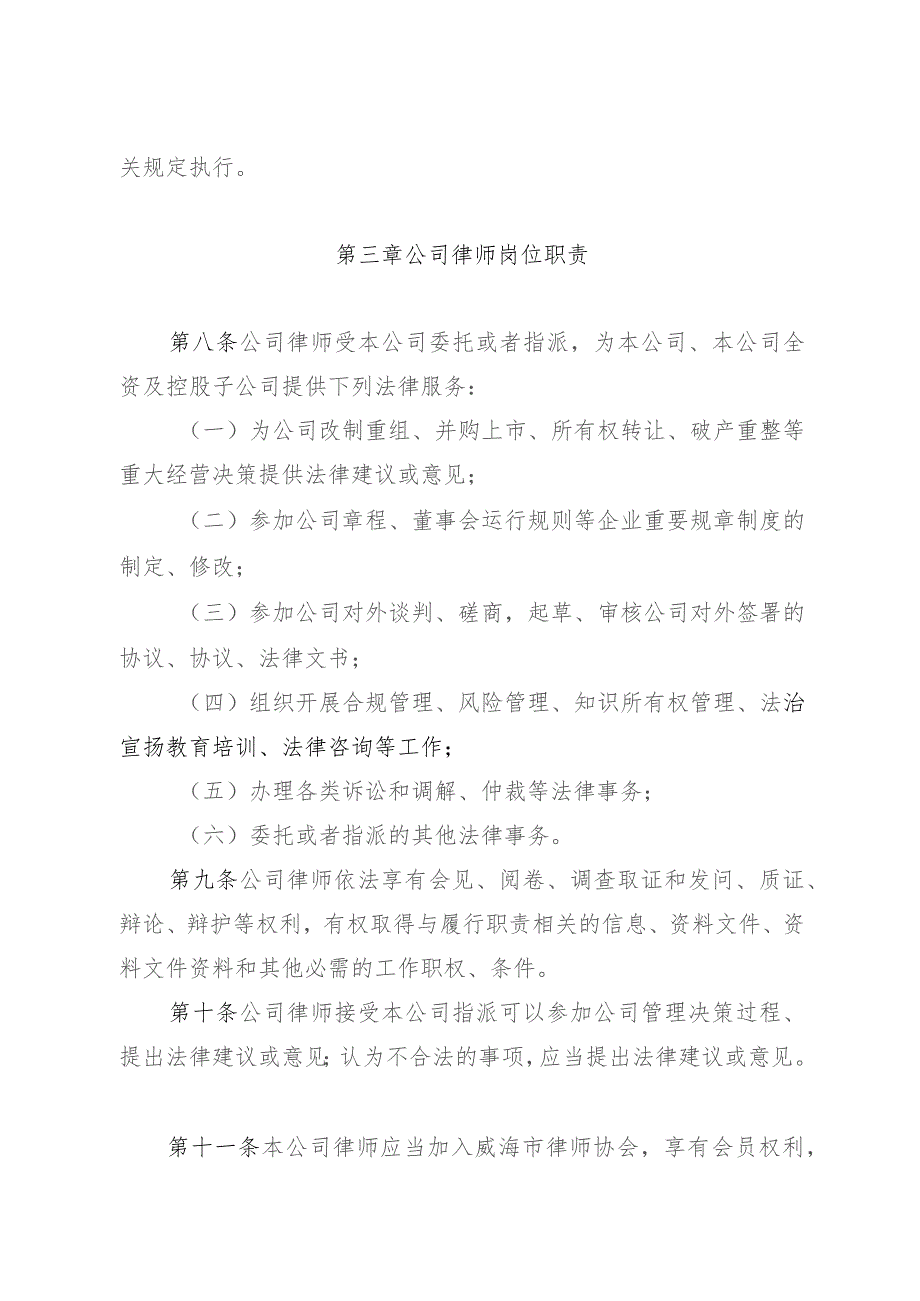 关规定执行。
第三章公司律师岗位职责
第八条公司律师受本公司委托或者指派，为本公司、本公司全
资及控股子公司提供下列法律服务：
（一）为公司改制重组、并购上市、所有权转让、破产重整等
重大经营决策提供法律建议或意见；
（二）参加公司章程、董事会运行规则等企业重要规章制度的
制定、修改；
（三）参加公司对外谈判、磋商，起草、审核公司对外签署的
协议、协议、法律文书；
（四）组织开展合规管理、风险管理、知识所有权管理、法治
宣扬教育培训、法律咨询等工作；
（五）办理各类诉讼和调解、仲裁等法律事务；
（六）委托或者指派的其他法律事务。
第九条公司律师依法享有会见、阅卷、调查取证和发问、质证、
辩论、辩护等权利，有权取得与履行职责相关的信息、资料文件、资
料文件资料和其他必需的工作职权、条件。
第十条公司律师接受本公司指派可以参加公司管理决策过程、
提出法律建议或意见；认为不合法的事项，应当提出法律建议或意见。
第十一条本公司律师应当加入威海市律师协会，享有会员权利，